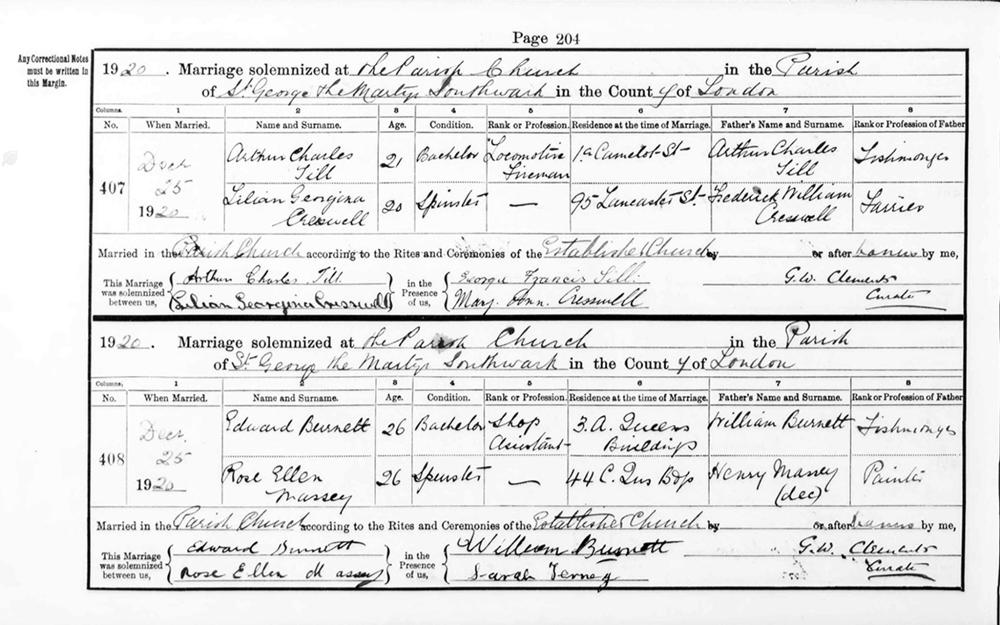 Page 204
Any Correctional Notes
must be written in
this Margin.
1920. Marriage solemnized at the Parish Church in the Parish
of St. George the Martyr Southwark in the County of London
Columns. 1 2 3 4 5 6 7 8
No. When Married. Name and Surname. Age. Condition. Rank or Profession. Residence at the time of Marriage. Father's Name and Surname. Rank or Profession of Father
407 Decr 25 1920
Arthur Charles Till 21 Bachelor Locomotive Fireman 19 Camelot St Arthur Charles Till Fishmonger
Lilian Georgina Cresswell 20 Spinster — 95 Lancaster St. Frederick William Cresswell Farrier
Married in the Parish Church according to the Rites and Ceremonies of the Established Church by or after banns by me,
This Marriage was solemnized between us, Arthur Charles Till in the Presence of us, George Francis Till G.W. Clements
Lilian Georgina Cresswell Mary Ann Cresswell Curate
1920. Marriage solemnized at the Parish Church in the Parish
of St. George the Martyr Southwark in the County of London
Columns, 1 2 3 4 5 6 7 8
No. When Married. Name and Surname. Age. Condition. Rank or Profession. Residence at the time of Marriage. Father's Name and Surname. Rank or Profession of Father
408 Decr. 25 1920
Edward Burnett 26 Bachelor Shop Assistant 3.A. Queens Buildings William Burnett Fishmonger
Rose Ellen Massey 26 Spinster — 44 C. Qns Bdgs Henry Massey (dec) Painter
Married in the Parish Church according to the Rites and Ceremonies of the Established Church by or after banns by me,
This Marriage was solemnized between us, Edward Burnett in the Presence of us, William Burnett G.W. Clements
Rose Ellen Massey Sarah Curate